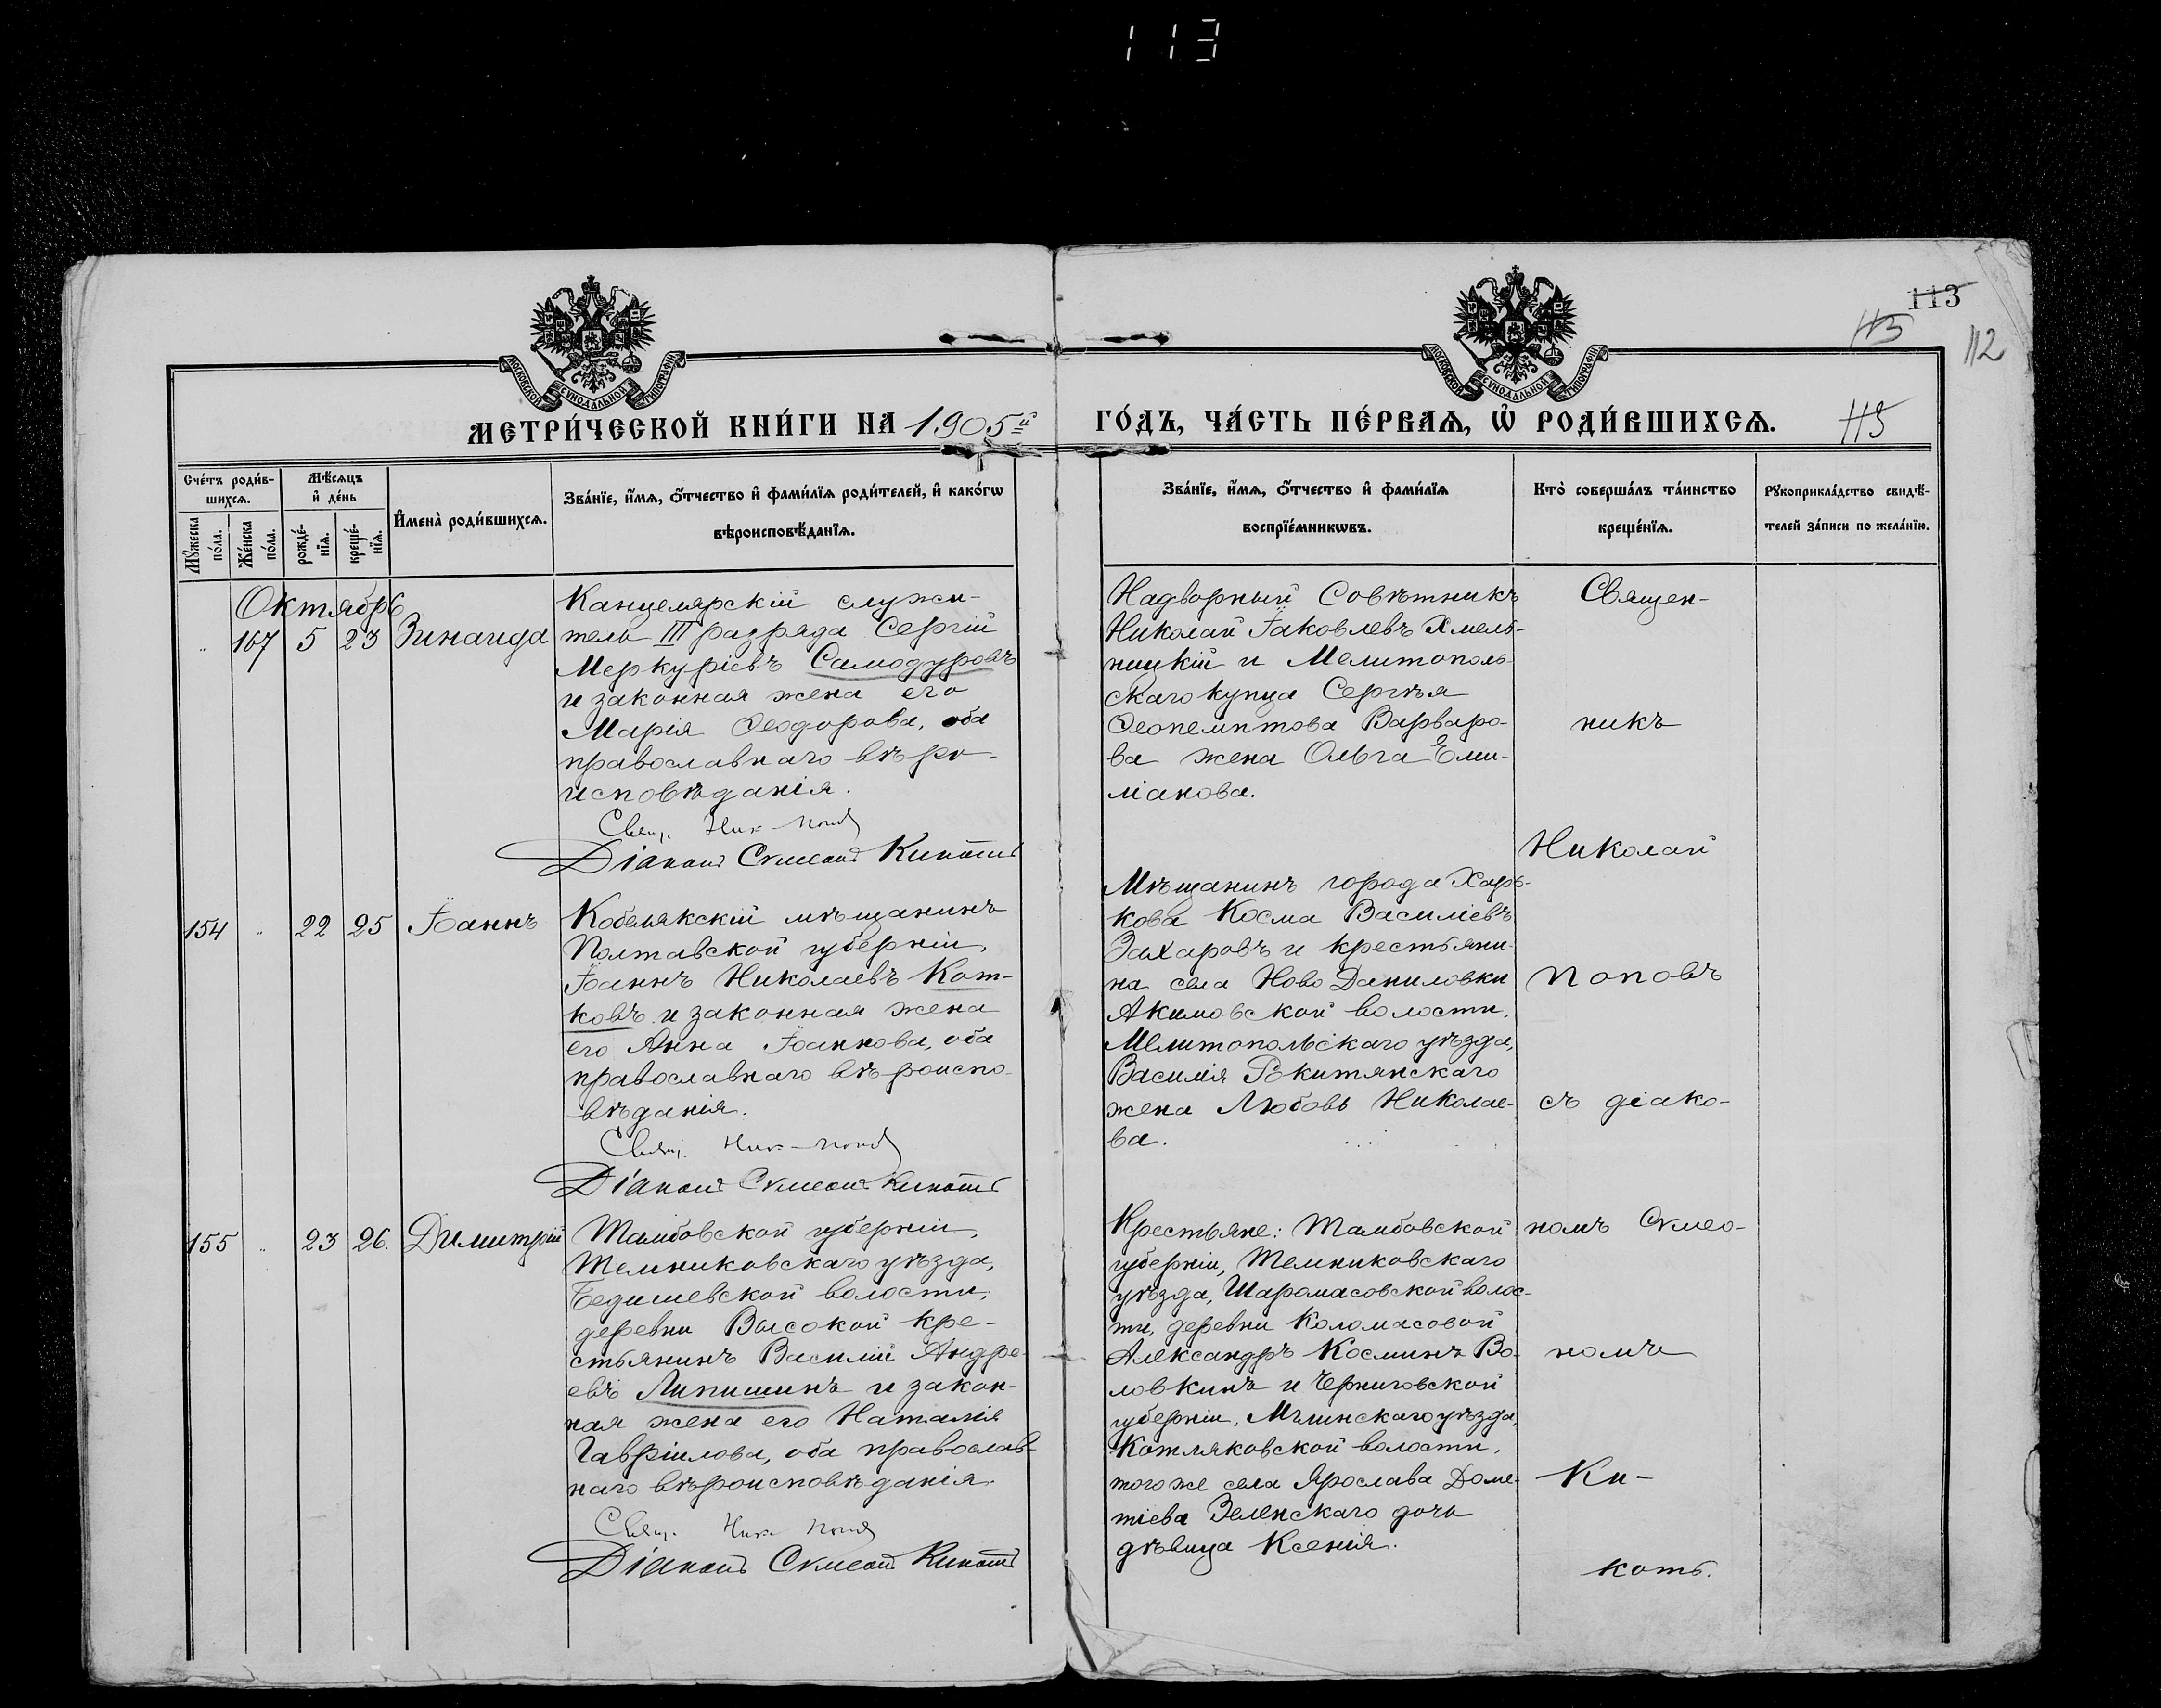 113
113
113
112
113
МОСКОВСКОЙ СУНОДАЛЬНОЙ ТИПОГРАФІИ
МОСКОВСКОЙ СУНОДАЛЬНОЙ ТИПОГРАФІИ
МЕТРИ́ЧЕСКОЙ КНИ́ГИ НА 1905й ГО́ДЪ, ЧА́СТЬ ПЕ́РВАѦ, Ѡ҆ РОДИ́ВШИХСѦ.
Сче́тъ роди́в-
шихсѧ.
Мꙋ́жеска
по́ла.
Же́нска
по́ла.
Мѣ́сѧцъ
и҆ де́нь
рожде́-
нїѧ.
креще́-
нїѧ.
И҆мена̀ роди́вшихсѧ.
Зва́нїе, и҆́мѧ, ѻ҆́тчество и҆ фами́лїѧ роди́телей, и҆ како́гѡ
вѣроисповѣ́данїѧ.
Зва́нїе, и҆́мѧ, ѻ҆́тчество и҆ фами́лїѧ
воспрїе́мникѡвъ.
Кто̀ соверша́лъ та́инство
креще́нїѧ.
Рꙋкоприкла́дство свидѣ́-
телей за́писи по жела́нїю.
Октябрь
" 107 5 23 Зинаида
Канцелярскій служи-
тель III разряда Сергій
Меркуріевъ Самодуровъ
и законная жена его
Марія Ѳеодорова, оба
православнаго вѣро-
исповѣданія.
Свящ. Ник. Попов
Діаконъ Сѵмеонъ Кикоть
Надворный Совѣтникъ
Николай Іаковлевъ Хмель-
ницкій и Мелитополь-
скаго купца Сергѣя
Ѳеопемптова Варваро-
ва жена Ольга Еми-
ліанова.
154 " 22 25 Іоаннъ
Кобелякскій мѣщанинъ
Полтавской губерніи,
Іоаннъ Николаевъ Кот-
ковъ и законная жена
его Анна Іоаннова, оба
православнаго вѣроиспо-
вѣданія.
Свящ. Ник. Попов
Діаконъ Сѵмеонъ Кикоть
Мѣщанинъ города Харь-
кова Косма Василіевъ
Захаровъ и крестьяни-
на села Ново Даниловки
Акимовской волости,
Мелитопольскаго уѣзда,
Василія Рокитянскаго
жена Любовь Николае-
ва.
155 " 23 26. Димитрій
Тамбовской губерніи,
Темниковскаго уѣзда,
Бедишевской волости,
деревни Высокой кре-
стьянинъ Василій Андре-
евъ Липишинъ и закон-
ная жена его Наталія
Гавріилова, оба православ-
наго вѣроисповѣданія.
Свящ. Ник. Попов
Діаконъ Сѵмеонъ Кикоть
Крестьяне: Тамбовской
губерніи, Темниковскаго
уѣзда, Шаромасовской волос-
ти, деревни Коломасовой
Александръ Косминъ Во-
ловкинъ и Черниговской
губерніи, Мглинскаго уѣзда,
Котляковской волости,
того же села Ярослава Доме-
тіева Зеленскаго дочь
дѣвица Ксенія.
Священ-
никъ
Николай
Поповъ
съ діако-
номъ Сѵмео-
номъ
Ки-
коть.